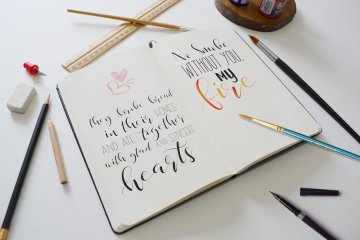 They broke bread
in their HOMES
AND ATE together
with glad AND SINCERE
hearts
No Smoke
WITHOUT YOU,
MY
fire